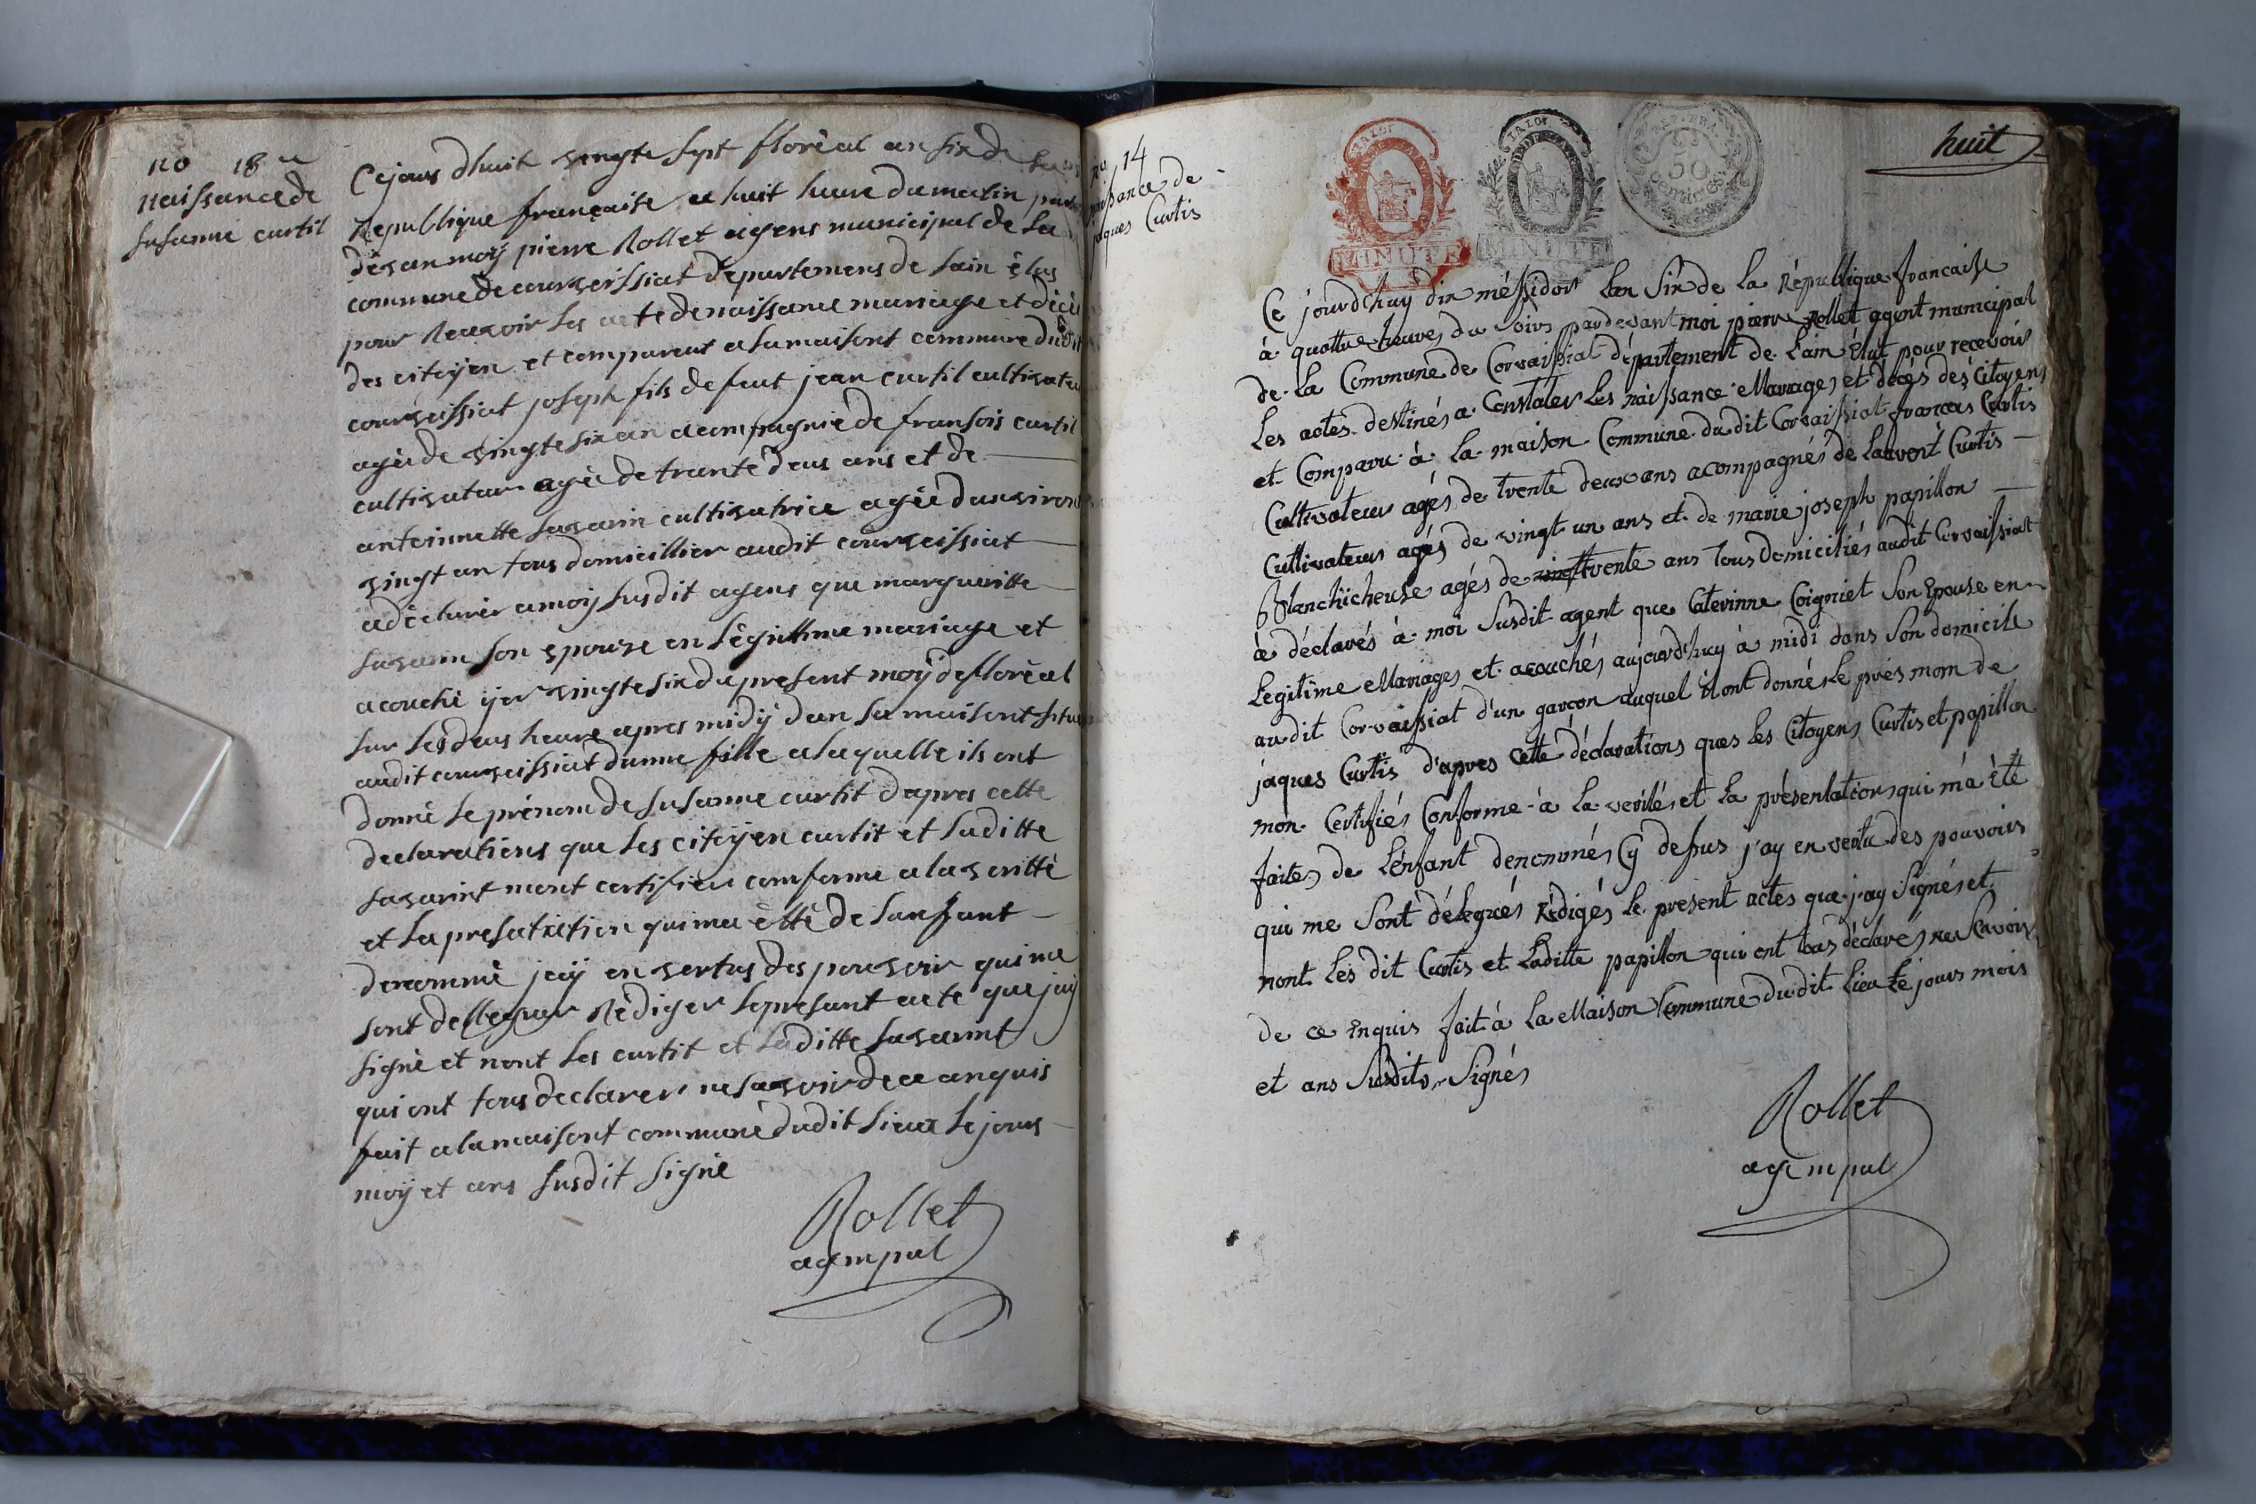 no 18
Naissance de
Susanne curtil
Cejours dhuit vingte sept florêal an six de la
Republique française a huit heure du matin par
devan moÿ pierre Rollet agens municipal de la
commune de courveissiat dêpartemens de lain êlus
pour Recevoir les acte de naissance mariage et dêcê
des citoÿen et compareut a la maisont commune dudit
courveissiat joseph fils de feut jean curtil cultivateu
agêe de vingte six an acompagnie de fransois curtil
cultivateur agêe de trante deus ans et de
antoinnette savarin cultivatrice agêe danviron
vingt un tous domicillier audit courveissiat
a dêclarêr a moÿ susdit agens que margueritte
savarin son epouse en lêgitthme mariage et
acouchê ijer vingte six du present moÿ de florêal
sur les deus heure apres midÿ dan sa maisont situe
audit courveissiat dunne fille a laquelle ils ont
donnê le prênom de Susanne curtit dapres cette
declarations que les citoÿen curtit et laditte
savarint mont certifier comforme a la veritté
et la presatation qui ma êttê de lanfant
denommê jaÿ en vertus des pouvoir qui me
sont dellêguer Rêdiger le present acte que jaÿ
signê et nont les curtit et laditte savarint
qui ont tous declarer ne savoir de ce anquis
fait a la maisont commune dudit lieux le jours
moÿ et ans susdit signê
Rollet
ag mpal
no 14
naissance de
jaques Curtis
LA LOI
MINUTE
LA LOI
MINUTE
REP. FRA.
50
centimes
huit
Ce jourdhuy dix méssidor lan Six de la Republique francaise
à quattre heures du Soirs pardevant moi pierre Rollet agent municipal
de la Commune de Corvaissiat département de Lain élut pour recevoir
Les actes destinés a Constater Les naissance Mariages et décés des Citoyens
et Comparu à la maison Commune du dit Corvaissiat francois Curtis
Cultivateur agés de trente deux ans acompagnés de Laurent Curtis
Cultivateurs agés de vingt un ans et de marie joseph papillon
Blanchicheuse agés de trente ans tous domiciliés audit Corvaissiat
à déclarés à moi Susdit agent que Caterinne Coigniet Son Epouse en
Legitime Mariages et acouchés aujourdhuy à midi dans Son domicile
audit Corvaissiat d'un garcon auquel il ont donnés le prés nom de
jaques Curtis d'apres Cette déclarations ques les Citoyens Curtis et papillon
mon Certifiés Conforme à la verités et la présentations qui m'a été
faites de l'énfant denommés Cy dessus j'ay en vertu des pouvoirs
qui me Sont délegués Rédigés le present actes que j'ay Signés et
nont Les dit Curtis et Laditte papillon qui ont tous déclarés ne Scavoir
de ce Enquis fait à La Maison Commune du dit Lieu Le jours mois
et ans Susdits Signés
Rollet
ag mpal